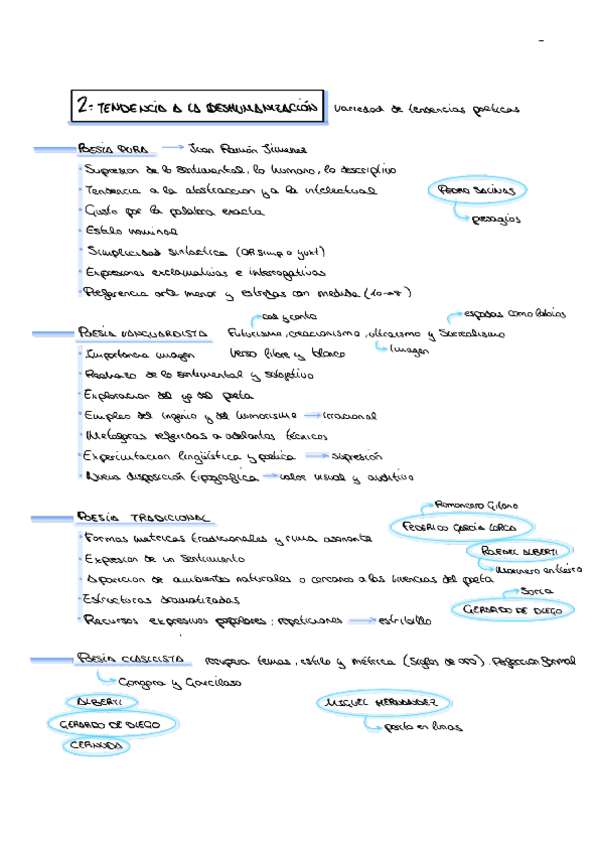 2: TENDENCIA A LA DESHUMANIZACIÓN variedad de tendencias poéticas
POESÍA PURA → Juan Ramón Jimenez
Supresion de lo sentimental, lo humano, lo descriptivo
Tendencia a la abstraccion y a la intelectual
PEDRO SALINAS
presagios
Gusto por la palabra exacta
Estilo nominal
Simplicidad sintactica (OR simp o yuxt)
Expresiones exclamativas e interrogativas
Preferencia arte menor y estrofas con medida (10→8)
cas y conta
espadas como labios
POESÍA VANGUARDISTA Futurismo, creacionismo, ultraismo y Surrealismo
Importancia imagen verso libre y blanco
Imagen
Rechazo de lo sentimental y subjetivo
Exploracion del yo del poeta
Empleo del ingenio y del humorismo → irracional
Metaforas referidas a adelantos técnicos
Experimentacion lingüística y poética → supresión
Nueva disposición tipografica → valor visual y auditivo
Romancero Gitano
POESÍA TRADICIONAL
FEDERICO GARCÍA LORCA
Formas metricas tradicionales y rima asonante
RAFAEL ALBERTI
Expresion de un sentimiento
Marinero en tierra
Aparicion de ambientes naturales o cercanos a las vivencias del poeta
Soria
Estructuras dramatizadas
GERARDO DE DIEGO
Recursos expresivos populares: repeticiones → estribillo
POESÍA CLASICISTA recupera temas, estilo y métrica (Siglos de oro). Perfeccion formal
Gongora y Garcilaso
ALBERTI
MIGUEL HERNANDEZ
GERARDO DE DIEGO
perito en lunas
CERNUDA